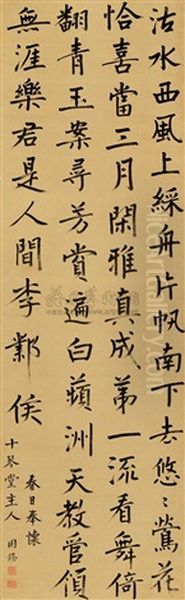 沽水西風上綵舟片帆南下去悠〻鶯花
恰喜當三月閑雅真成第一流看舞倚
翻青玉案尋芳賞遍白蘋洲天教管領
無涯樂君是人間李鄴侯
春日奉懷
十琴堂主人